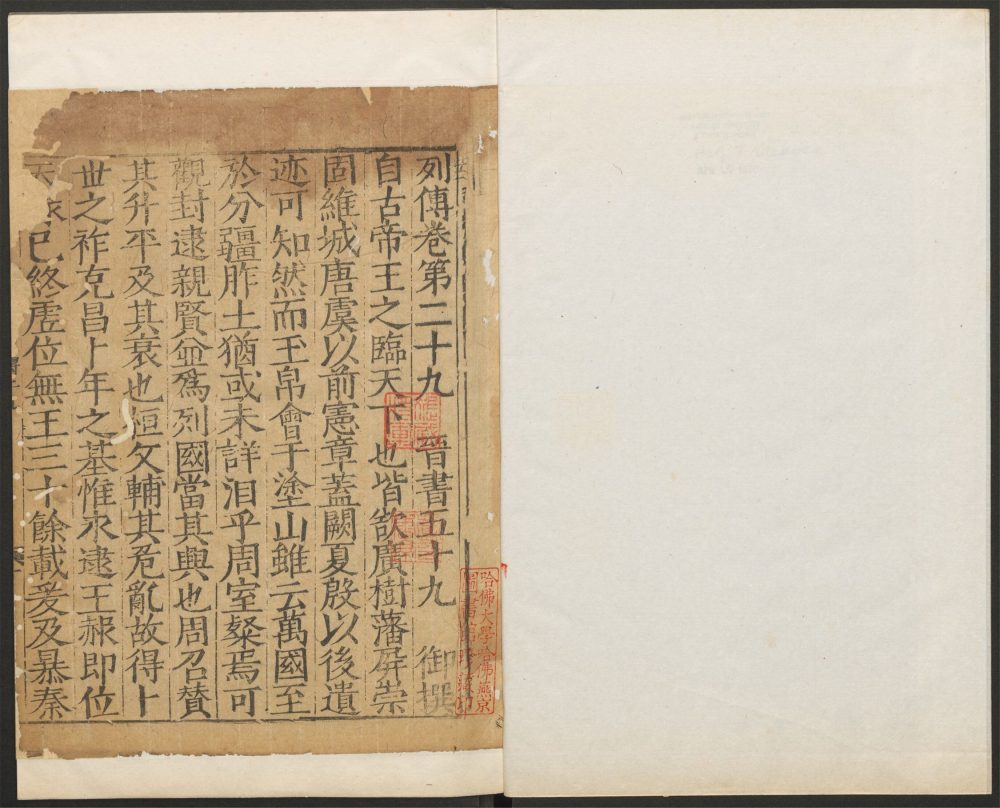 列傳卷第二十九 晉書五十九 御撰
自古帝王之臨天下也皆欲廣樹藩屏崇
固維城唐虞以前憲章蓋闕夏殷以後遺
迹可知然而玉帛會于塗山雖云萬國至
於分疆胙土猶或未詳洎乎周室粲焉可
觀封建親賢並爲列國當其興也周召賛
其升平及其衰也桓文輔其危亂故得卜
世之祚克昌卜年之基惟永逮王赧即位
天 已終虗位無王三十餘載爰及暴秦
哈佛大學哈佛燕京
圖書館珍藏印